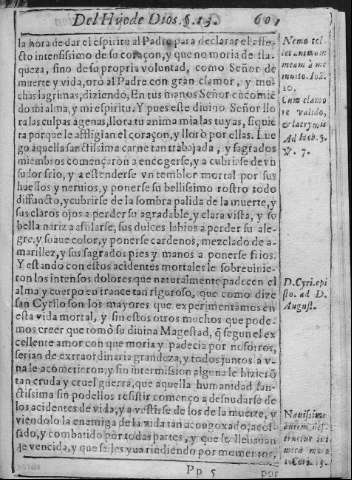 Del Hijo de Dios. §. 13. 601
la hora de dar el espiritu al Padre para declarar el afe-
cto intensissimo de su coraçon, y que no moria de fla-
queza, sino de su propria voluntad, como Señor de
muerte y vida, oró al Padre con gran clamor, y mu-
chas lagrimas, diziendo, En tus manos Señor encomie-
do mi alma, y mi espiritu. Y pues este diuino Señor llo-
ra las culpas agenas, llora tu anima mia las tuyas, siquie
ra porque le affligian el coraçon, y lloró por ellas. Lue
go aquella sanctissima carne tan trabajada, y sagrados
miembros començaron a encogerse, y a cubrirse de vn
sudor frio, y a estenderse vn temblor mortal por sus
huessos y neruios, y ponerse su bellissimo rostro todo
diffuncto, y cubrirse de la sombra palida de la muerte, y
sus claros ojos a perder su agradable, y clara vista, y su
bella nariz a afilarse, sus dulces labios a perder su ale-
gre, y suaue color, y ponerse cardenos, mezclado de a-
marillez, y sus sagrados pies y manos a ponerse frios.
Y estando con estos accidentes mortales le sobreuinie-
ron los intensos dolores que naturalmente padecen el
alma y cuerpo en trance tan riguroso, que como dize
san Cyrillo son los mayores que experimentamos en
esta vida mortal, y sin estos otros muchos que pode-
mos creer que tomó su diuina Magestad, q̃ segun el ex
cellente amor con que moria y padecia por nosotros,
serian de extraordinaria grandeza, y todos juntos a v-
na le acometieron, y sin intermission alguna le hizieró
tan cruda y cruel guerra, que aquella humanidad san-
ctissima sin podellos resistir començó a desnudarse de
los accidentes de vida, y a vestirse de los de la muerte, y
viendolo la enemiga de la vida tan acongoxado, aco-
sado, y combatido por todas partes, y que se lleuauan
de vencida, y que se les yua rindiendo por momentos,
Pp 5 por
Nemo tol
lit animam
meam à me
ipso. Ioã.
10.
Cum clamo
re valido,
& lacrymis
Ad heb. 5.
V. 7.
D. Cyri. epi
sto. ad D.
August.
Nouissime
autem des-
truetur ini
mica mors
1. Cor. 15.